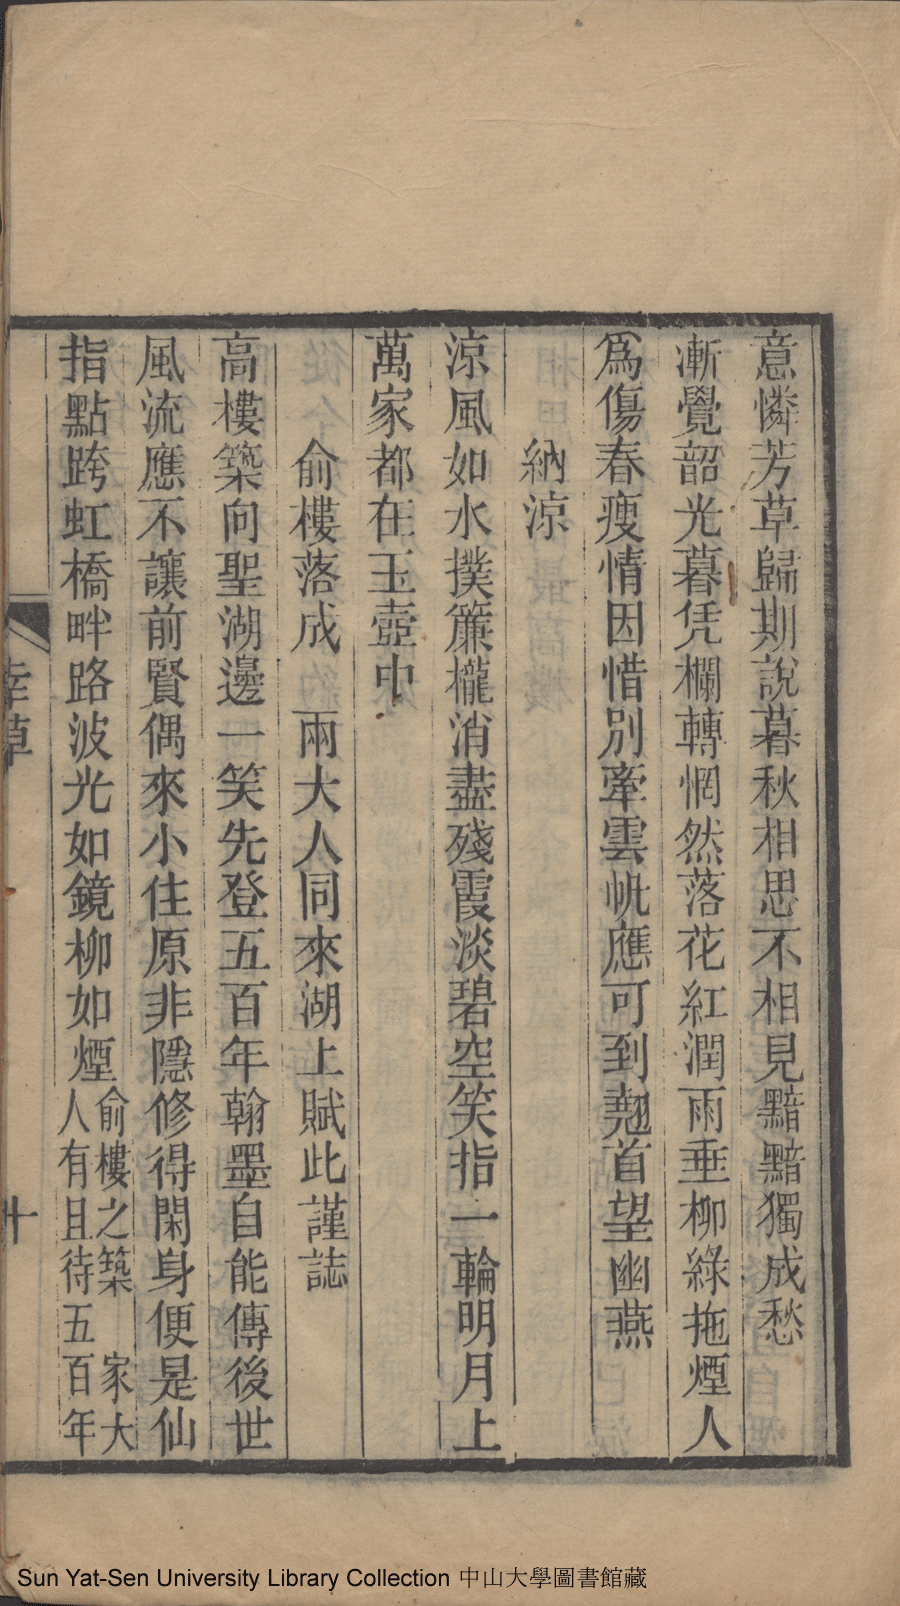 意憐芳草歸期說暮秋相思不相見黯黯獨成愁
漸覺韶光暮凭欄轉惘然落花紅潤雨垂柳綠拖煙人
爲傷春瘦情因惜別牽雲帆應可到翹首望幽燕
納涼
涼風如水撲簾櫳消盡殘霞淡碧空笑指一輪明月上
萬家都在玉壺中
俞樓落成　兩大人同來湖上賦此謹誌
高樓築向聖湖邊一笑先登五百年翰墨自能傳後世
風流應不讓前賢偶來小住原非隱修得閑身便是仙
指點跨虹橋畔路波光如鏡柳如煙
俞樓之築　家大
人有且待五百年
草
十
Sun Yat-Sen University Library Collection 中山大學圖書館藏